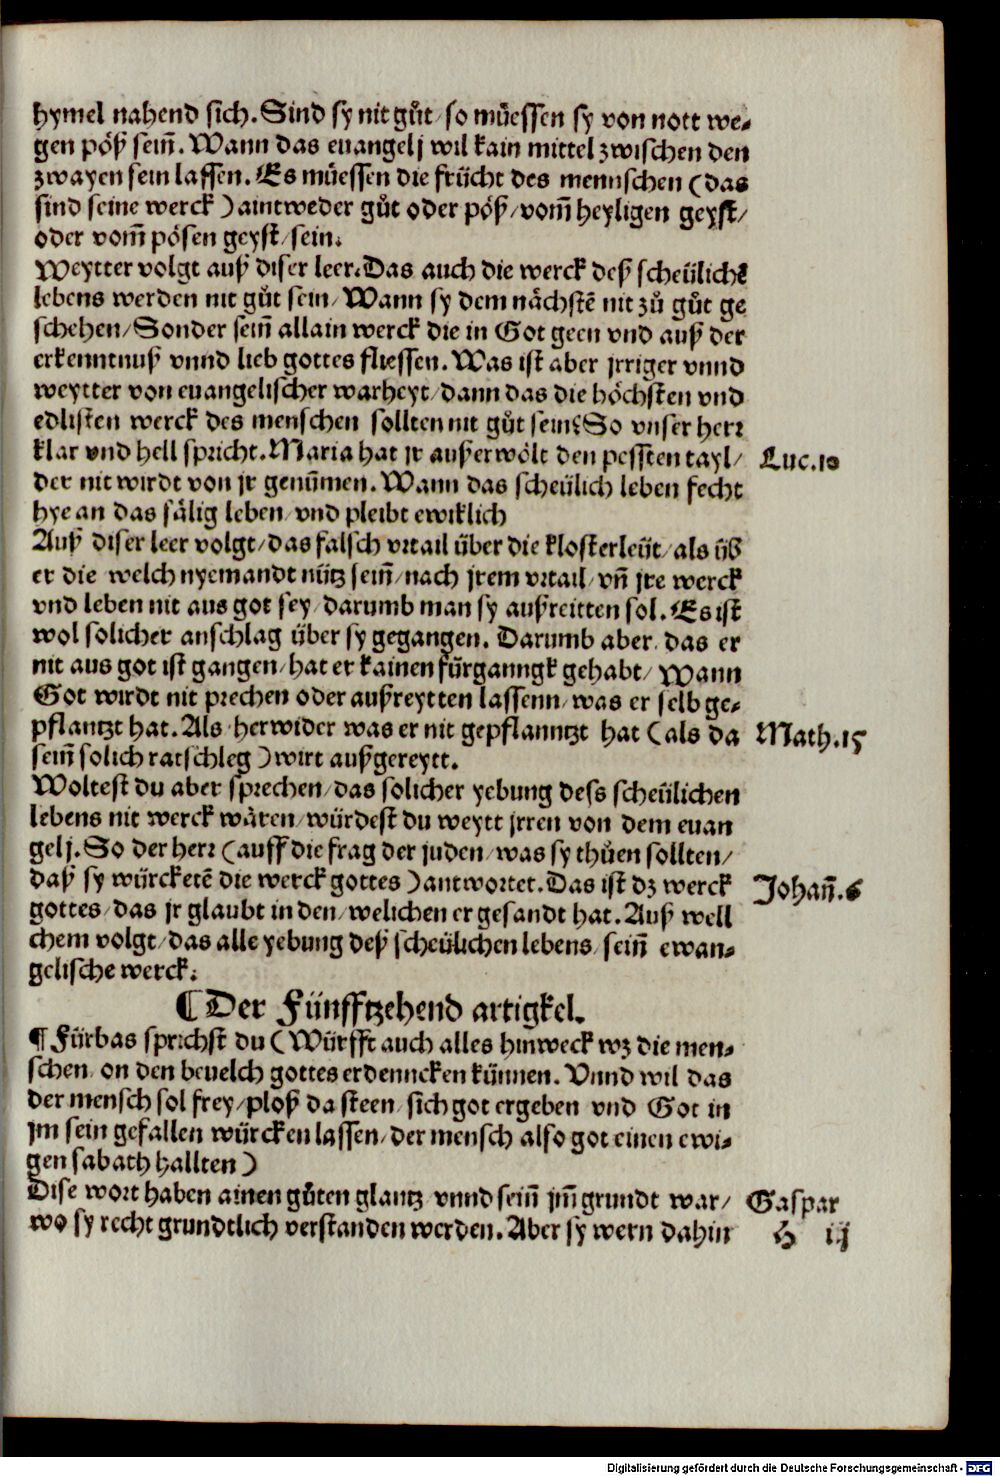 hymel nahend sich. Sind sy nit gůt/ so můessen sy von nott we⸗
gen pöß sein̄. Wann das euangelj wil kain mittel zwischen den
zwayen sein lassen. Es můessen die frücht des mennschen (das
sind seine werck) aintweder gůt oder pöß/ vom̄ heyligen geyst/
oder vom̄ pösen geyst/ sein.
Weytter volgt auß diser leer. Das auch die werck deß scheülichē
lebens werden nit gůt sein/ Wann sy dem nächstē nit zů gůt ge
schehen/ Sonder sein̄ allain werck die in Got geen vnd auß der
erkenntnuß vnnd lieb gottes fliessen. Was ist aber jrriger vnnd
weytter von euangelischer warheyt/ dann das die höchsten vnd
edlisten werck des menschen sollten nit gůt sein? So vnser herr
klar vnd hell spricht. Maria hat jr außerwölt den pessten tayl/
Luc.10
der nit wirdt von jr genum̄en. Wann das scheülich leben fecht
hye an das sälig leben/ vnd pleibt ewiklich
Auß diser leer volgt/ das falsch vrtail über die klosterleüt/ als üb
er die welch nyemandt nütz sein̄/ nach jrem vrtail/ vn̄ jre werck
vnd leben nit aus got sey/ darumb man sy außreitten sol. Es ist
wol solicher anschlag über sy gegangen. Darumb aber/ das er
nit aus got ist gangen/ hat er kainen fürganngk gehabt/ Wann
Got wirdt nit prechen oder außreytten lassenn/ was er selb ge⸗
pflantzt hat. Als herwider was er nit gepflanntzt hat (als da
Math.15
sein̄ solich ratschleg) wirt außgereytt.
Woltest du aber sprechen/ das solicher yebung dess scheülichen
lebens nit werck wären/ würdest du weytt jrren von dem euan
gelj. So der herr (auff die frag der juden/ was sy thůen sollten/
daß sy würcketē die werck gottes) antwortet. Das ist dz werck
Johan̄.6
gottes/ das jr glaubt in den/ welichen er gesandt hat. Auß well
chem volgt/ das alle yebung deß scheülichen lebens/ sein̄ ewan⸗
gelische werck.
¶ Der Fünfftzehend artigkel.
¶ Fürbas sprichst du (Würfft auch alles hinweck wz die men⸗
schen/ on den beuelch gottes erdenncken künnen. Vnnd wil das
der mensch sol frey/ ploß da steen/ sich got ergeben vnd Got in
jm sein gefallen würcken lassen/ der mensch also got einen ewi⸗
gen sabath hallten)
Dise wort haben ainen gůten glantz vnnd sein̄ jm̄ grundt war/
Gaspar
wo sy recht grundtlich verstanden werden. Aber sy wern dahin
H ij
Digitalisierung gefördert durch die Deutsche Forschungsgemeinschaft - DFG